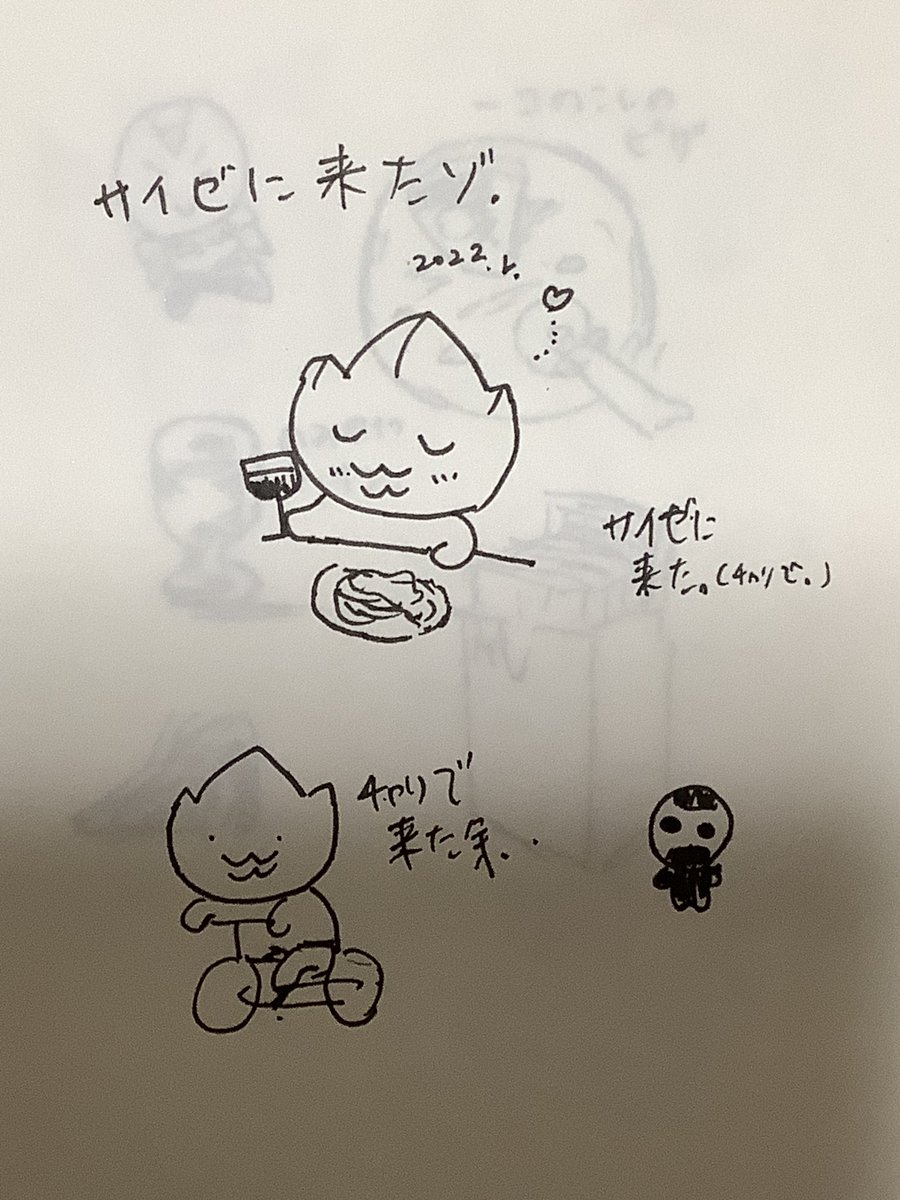 サイゼに来たゾ.
2022.1.
サイゼに
来た。(チャリで。)
チャリで
来た余..